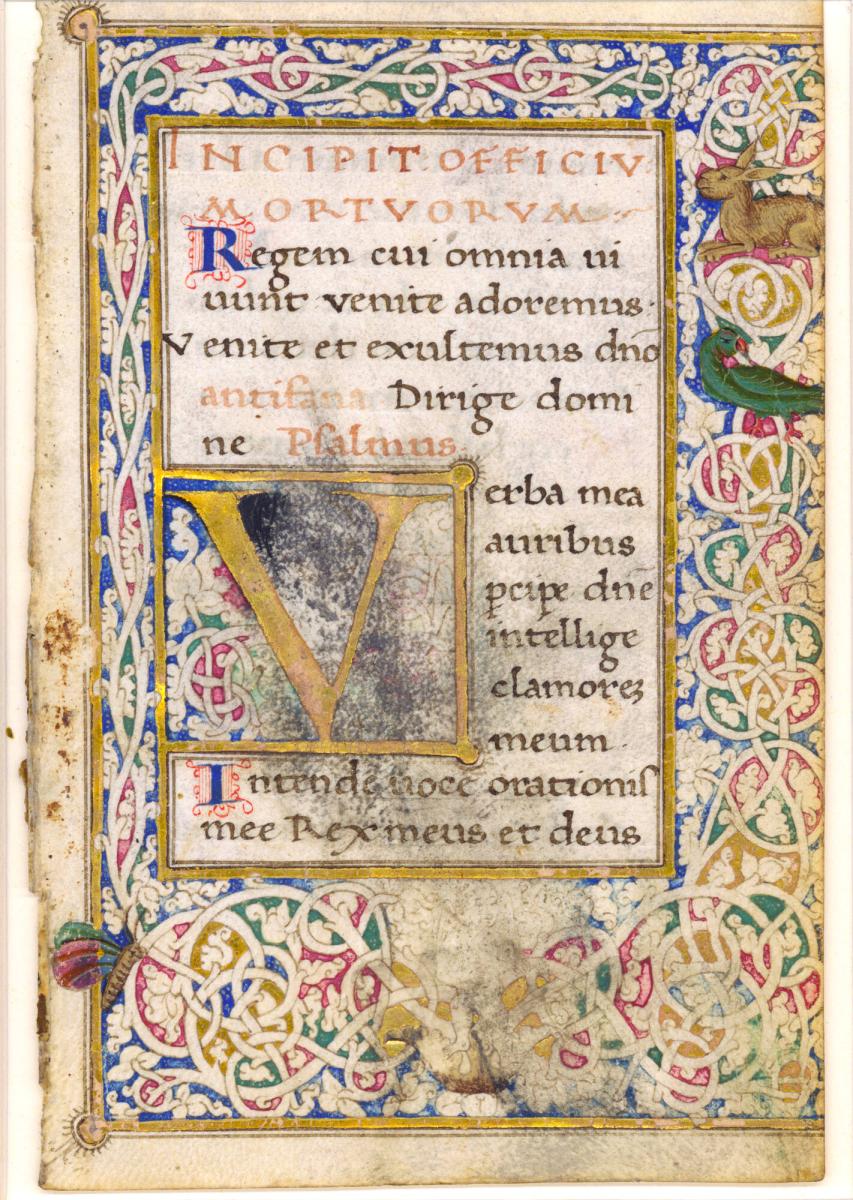 INCIPIT OFFICIV
MORTVORVM
Regem cui omnia ui
uunt venite adoremus.
Venite et exultemus dnō
antifana Dirige domi
ne Psalmus.
Verba mea
auribus
ꝑcipe dn̄e
intellige
clamorēꝫ
meum.
Intende uoce orationis
mee Rex meus et deus